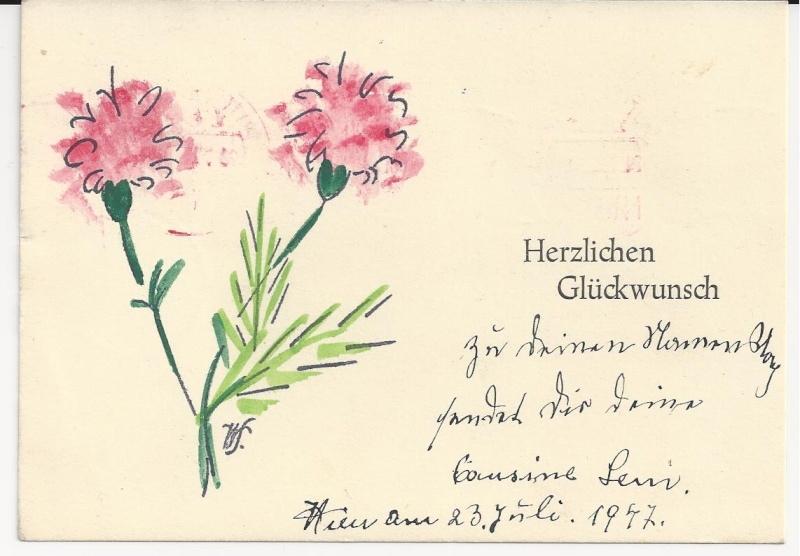 Herzlichen
Glückwunsch
zu deinen Namenstag
sendet dir deine
Cousine Leni.
Wien am 23. Juli. 1977.